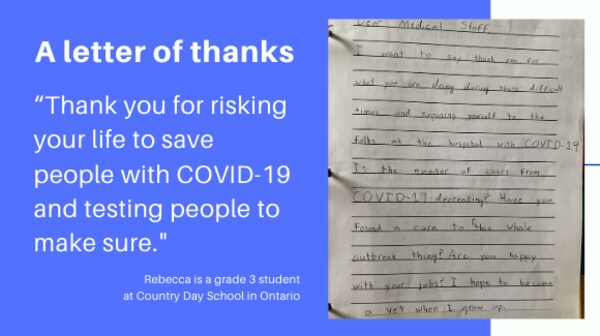 A letter of thanks
“Thank you for risking
your life to save
people with COVID-19
and testing people to
make sure."
Rebecca is a grade 3 student
at Country Day School in Ontario
Dear Medical Staff
I want to say thank you for
what you are doing during these difficult
times and exposing yourself to the
folks at the hospital with COVID-19
Is the number of cases from
COVID-19 decreasing? Have you
found a cure to this whole
outbreak thing? Are you happy
with your jobs? I hope to become
a vet when I grow up.